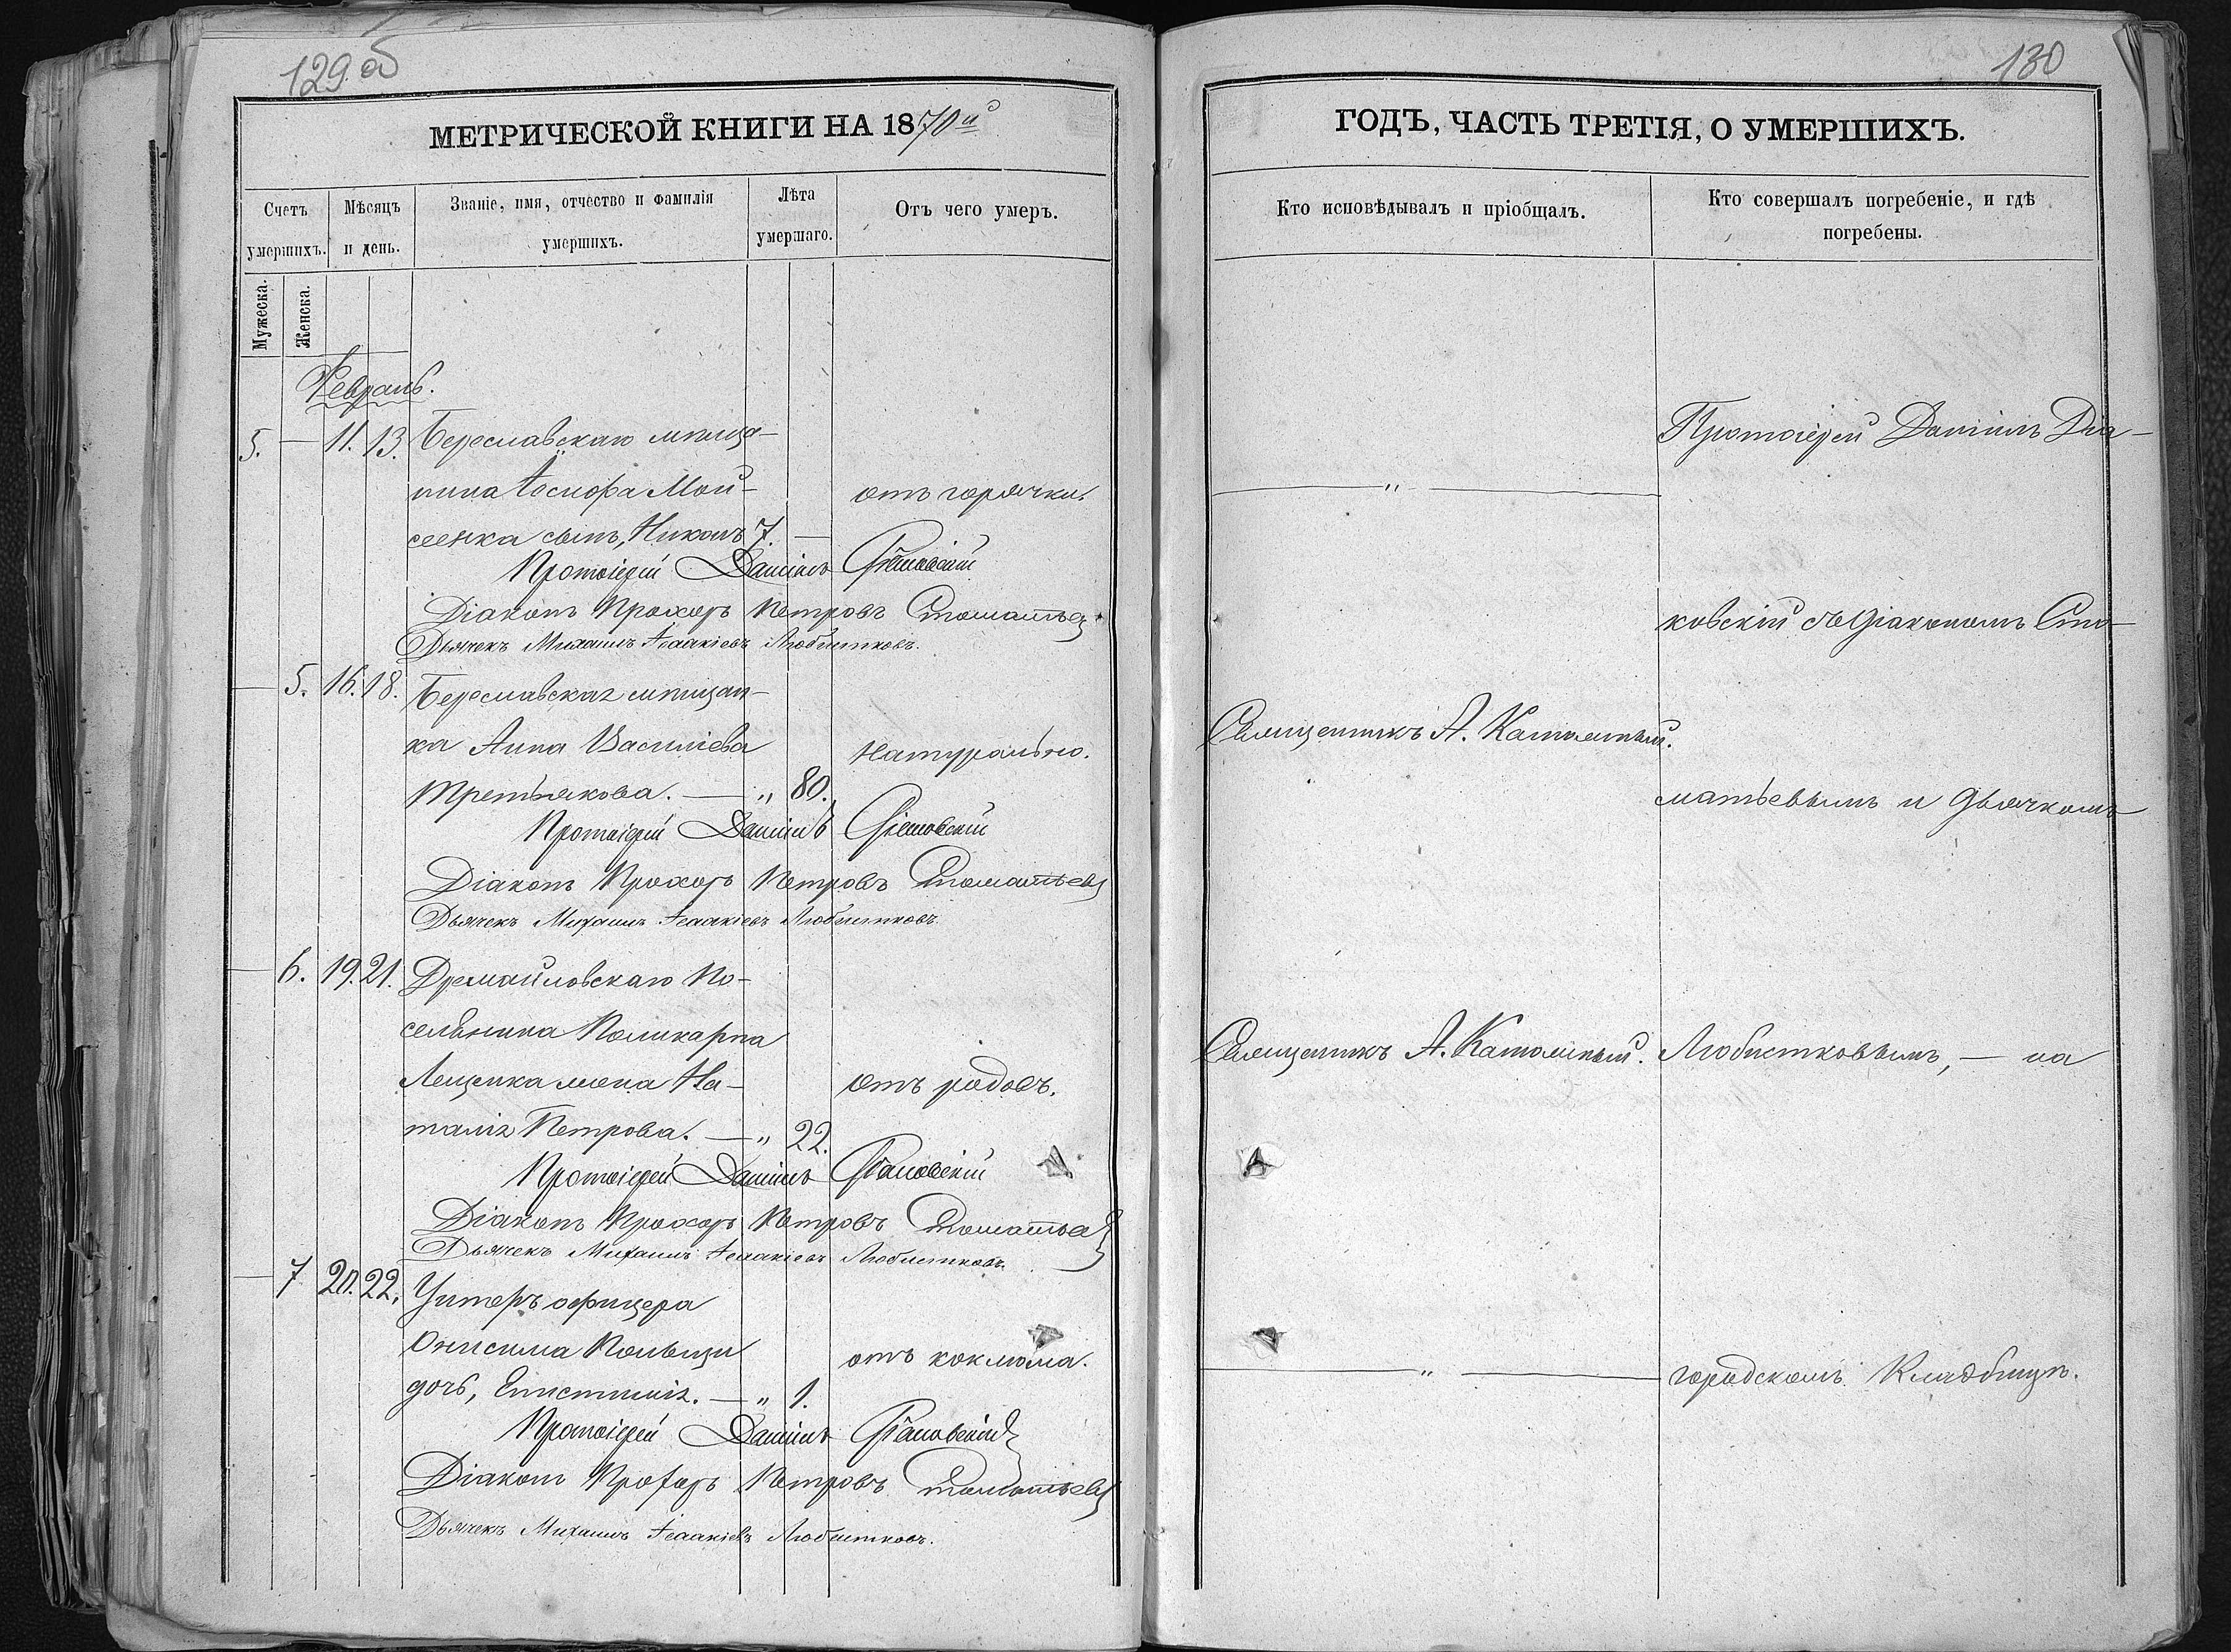 129 об
МЕТРИЧЕСКОЙ КНИГИ НА 1870й
Счетъ умершихъ.
Мѣсяцъ и день.
Званіе, имя, отчество и фамилія умершихъ.
Лѣта умершаго.
Отъ чего умеръ.
Мужеска.
Женска.
Февраль.
5. — 11. 13. Бериславскаго мѣща-
нина Іосифа Мои-
сеенка сынъ, Никонъ 7. —
отъ горячки.
Протоіерей Даніилъ Діаковскій
Діаконъ Прохоръ Петровъ Стоматьев
Дьячекъ Михаилъ Ісаакіевъ Любистковъ.
— 5. 16. 18. Береславская мѣщан-
ка Анна Василіева
Третьякова. — " 80.
Натурально.
Протоіерей Даніилъ Діаковскій
Діаконъ Прохоръ Петровъ Стоматьев
Дьячекъ Михаилъ Ісаакіевъ Любистковъ.
— 6. 19. 21. Дремайловскаго По-
сельнина Поликарпа
Лещенка жена На-
талія Петрова. — " 22.
отъ родовъ.
Протоіерей Даніилъ Діаковскій
Діаконъ Прохоръ Петровъ Стоматьев
Дьячекъ Михаилъ Ісаакіевъ Любистковъ.
— 7 20. 22. Унтеръ офицера
Онисима
дочь, Епистимія. — " 1.
отъ коклюша.
Протоіерей Даніилъ Діаковскій
Діаконъ Прохоръ Петровъ Стоматьев
Дьячекъ Михаилъ Ісаакіевъ Любистковъ.
130
ГОДЪ, ЧАСТЬ ТРЕТІЯ, О УМЕРШИХЪ.
Кто исповѣдывалъ и пріобщалъ.
Кто совершалъ погребеніе, и гдѣ погребены.
Протоіерей Даніилъ Діа-
— " —
ковскій съ діакономъ Сто-
Священникъ А. Католичный.
матьевымъ и дьячкомъ
Священникъ А. Католичный.
Любистковымъ, — на
— " —
городскомъ Кладбищѣ.